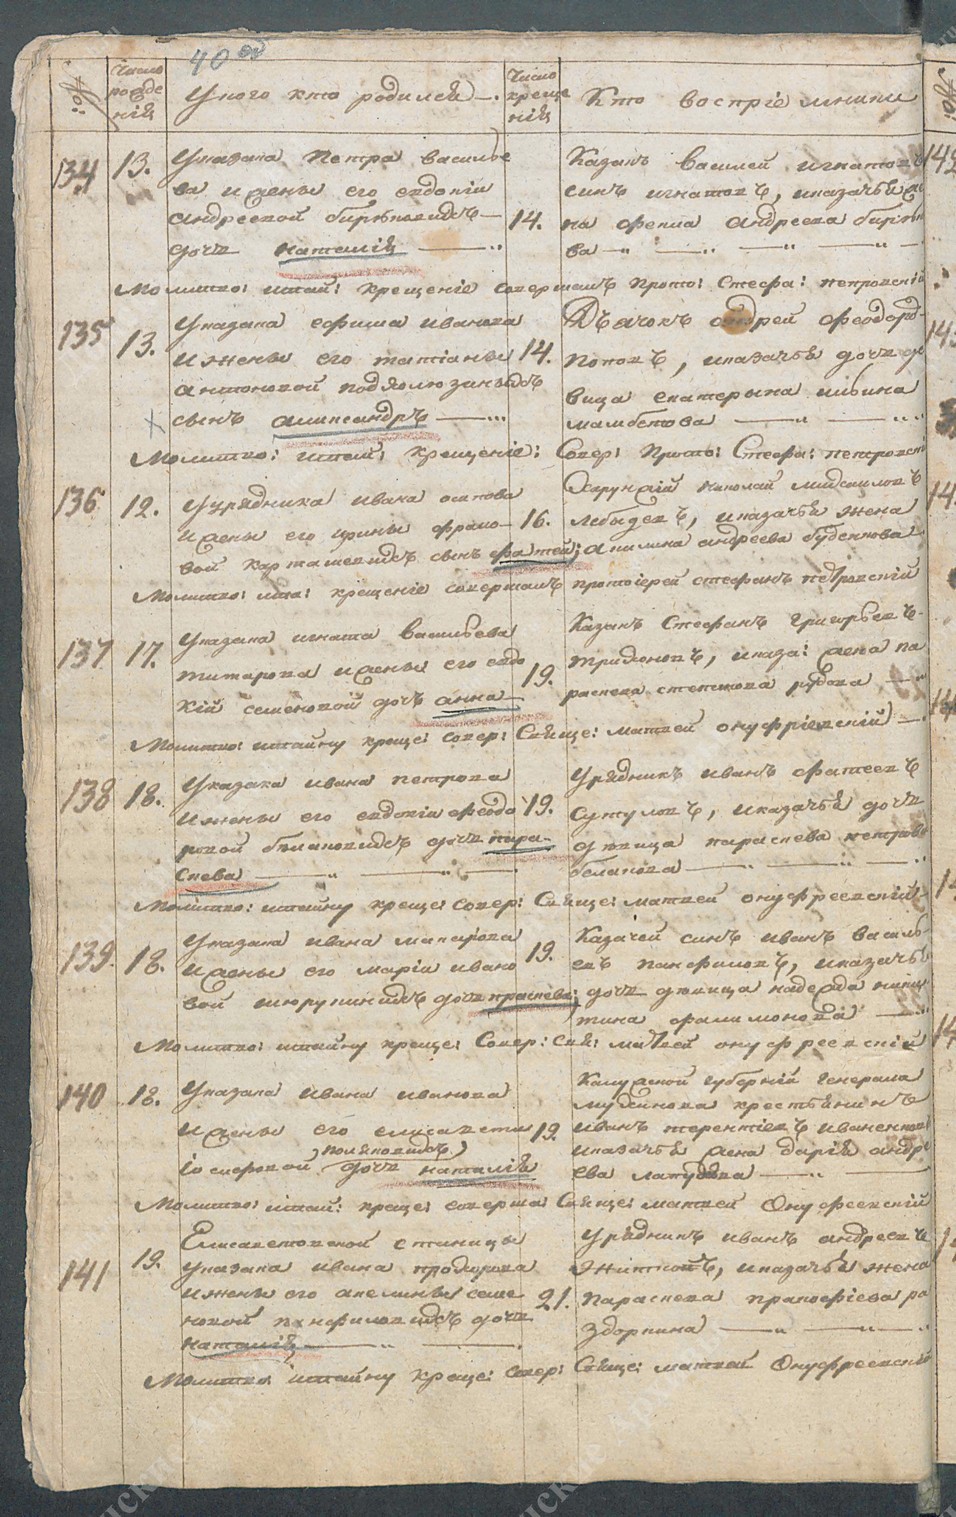 40 об
Число рожде нія
У кого кто родился
Число креще нія
Кто воспріемники
134 13. У казака Петра василье
ва и жены его евдокіи
андреевой бирюковыхъ
дочь наталія
14.
Казакъ василей игнатовъ
синъ игнатовъ, и казачья же
на фекла андреева бирюко
ва
Молитво: и тай: крещеніе совершалъ прото: Стефа: петровскій
135 13. У казака ефима иванова
и жены его татіаны
антоновой
сынъ александръ
14.
Дьячокъ андрей феодоро
поповъ, и казачья дочь де
вица екатерина
мамбетова
Молитво: и тай: крещеніе: Совер: Прото: Стефа: петровскій
136 12. У урядника ивана осипова
и жены его ирины
вой карташевыхъ сынъ фатей;
16.
Хорунжій николай михаиловъ
лебядевъ, и казачья жена
акилина андреева буденнова
Молитво: и та: крещеніе совершалъ протоіерей стефанъ петровскій
137 17. У казака игната васильева
титарова и жены его евдо
кіи семеновой дочь анна
19.
Казакъ Стефанъ григорьевъ
трифоновъ, и каза: жена па
раскева
Молитво: и тайну креще: совер: Свяще: матвей онуфріевскій
138 18. У казака ивана петрова
и жены его евдокіи феодо
ровой белановыхъ дочь пара-
скева
19.
Урядникъ иванъ фатеевъ
сутуловъ, и казачья дочь
девица параскева петрова
беланова
Молитво: и тайну креще: совер: Свяще: матвей онуфреевскій
139. 18. У казака ивана макарова
и жены его маріи ивано
вой шурупиныхъ дочь праскева;
19.
Казачей синъ иванъ василь
евъ панфиловъ, и казачья
дочь девица надежда ники
тина филимонова
Молитво: и тайну креще: Совер: свя: матвей онуфреевскій
140 18. У казака ивана иванова
и жены его елисаветы
іосифовой (поляковыхъ) дочь наталія
19.
Калужской губерніи генерала
крестьянинъ
иванъ терентіевъ иваненков
и казачья жена дарія андре
ева
Молитво: и тай: креще: соверша: Свяще: матвей Онуфреевскій
141 19. Елисаветовской станицы
у казака ивана прохорова
и жены его акелины семе
новой панфиловыхъ дочь
наталія
21.
Урядникъ иванъ андреевъ
и казачья жена
параскева прокофіева ра
здоркина
Молитво: и тайну креще: совер: Свяще: матвей Онуфреевскій